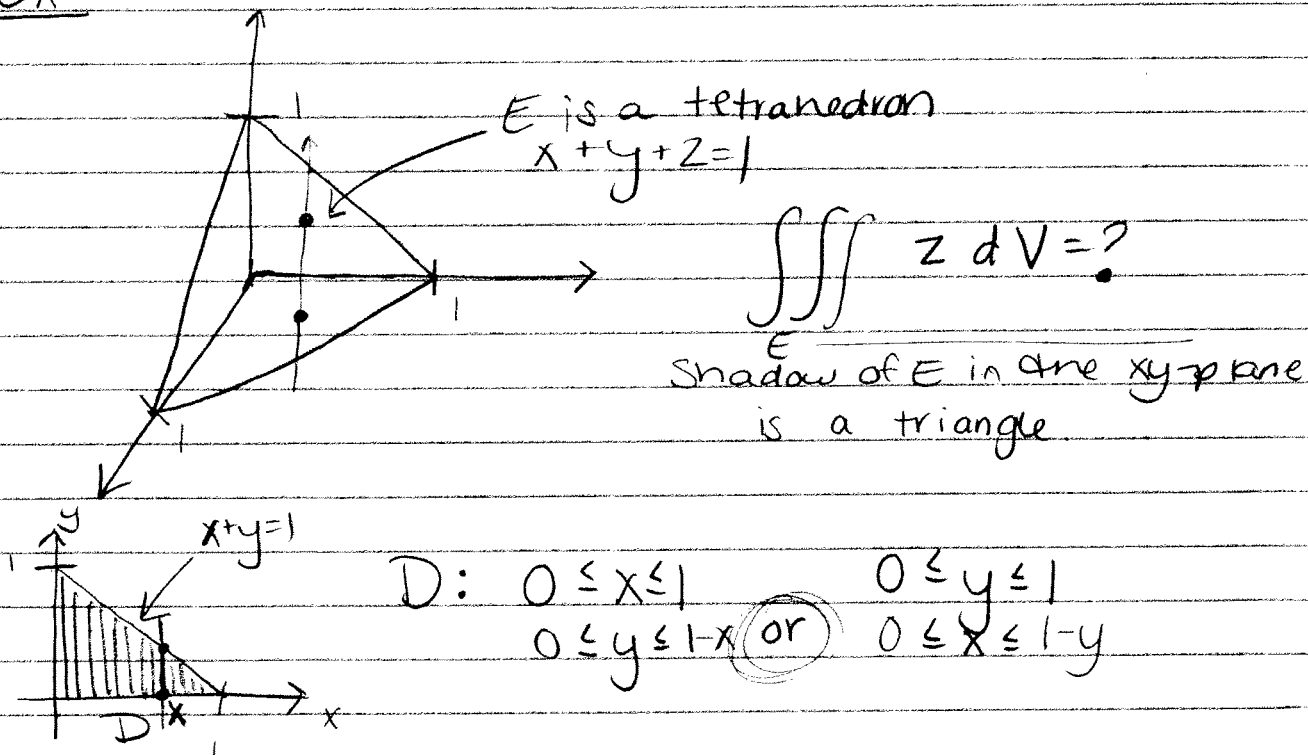 ex
1
E is a tetrahedron
x + y + z = 1
∭ z dV = ?
E
1
Shadow of E in the xy-plane
is a triangle.
1
y
x+y=1
1
D: 0 ≤ x ≤ 1 0 ≤ y ≤ 1
0 ≤ y ≤ 1-x or 0 ≤ x ≤ 1-y
D x 1 x